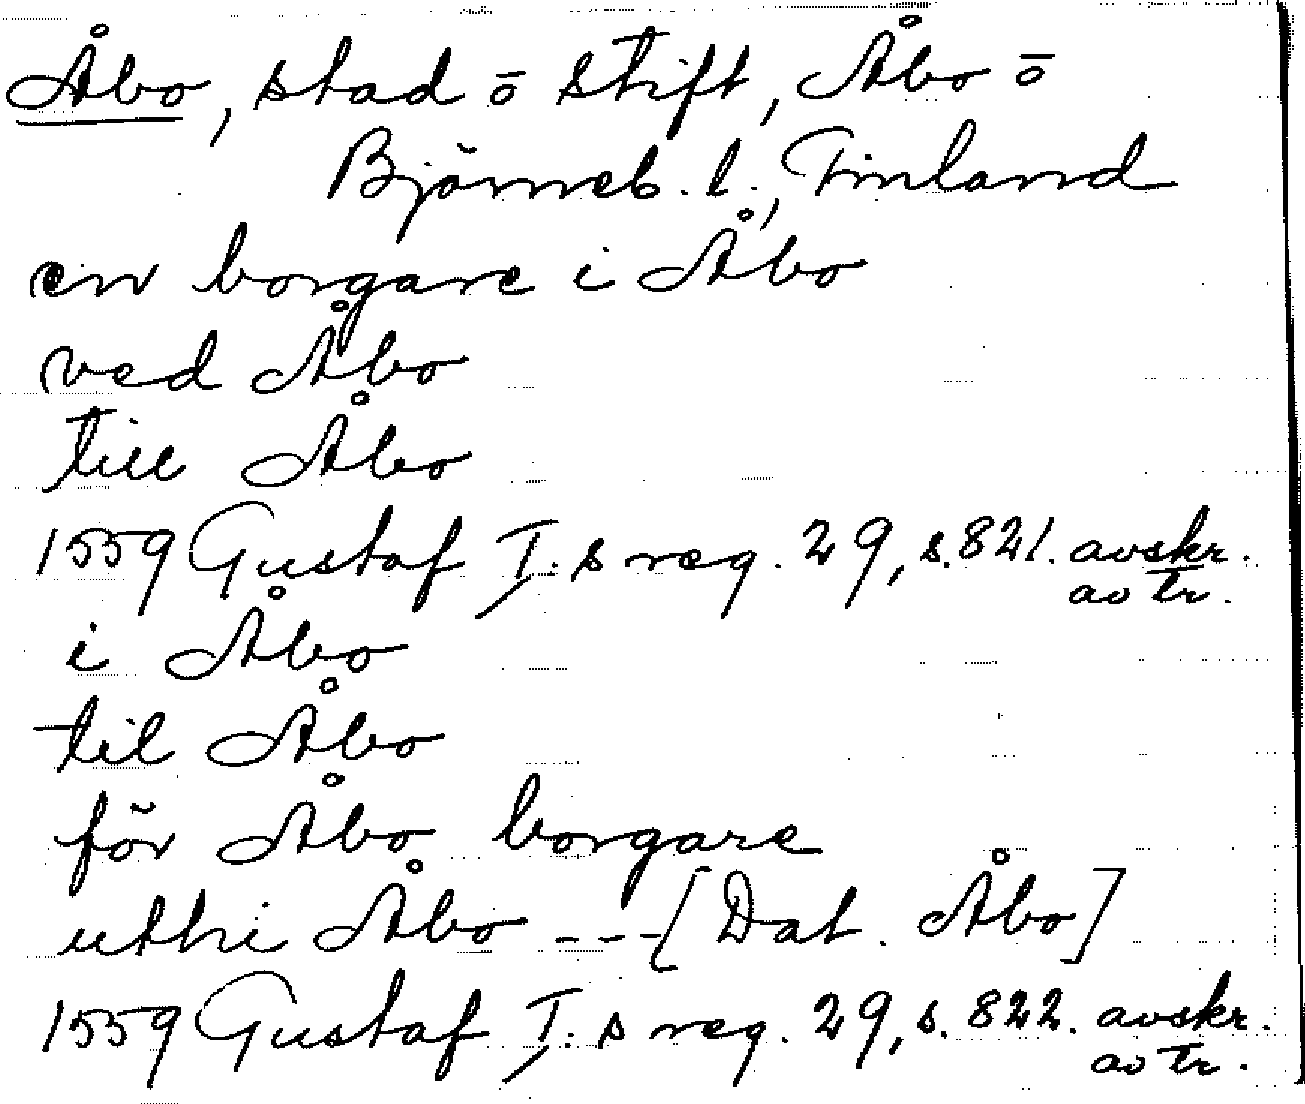 Åbo, stad o stift, Åbo o
Björneb. l., Finland
en borgare i Åbo
ved Åbo
till Åbo
1559 Gustaf I:s reg. 29, s. 821. avskr. av tr.
i Åbo
til Åbo
för Åbo borgare
uthi Åbo --- [Dat. Åbo]
1559 Gustaf I:s reg. 29, s. 822. avskr. av tr.